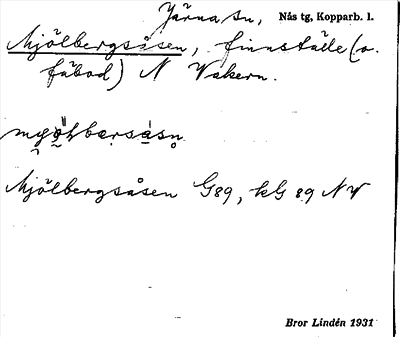 Järna sn, Nås tg, Kopparb. l.
Mjölbergsåsen, finnställe (o.
fäbod) N Vakern.
Mjölbergsåsen G89, kG 89 NV
Bror Lindén 1931